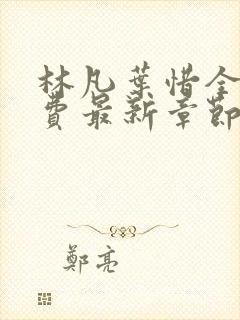 林凡葉惜全
費最新章節
鄭亮